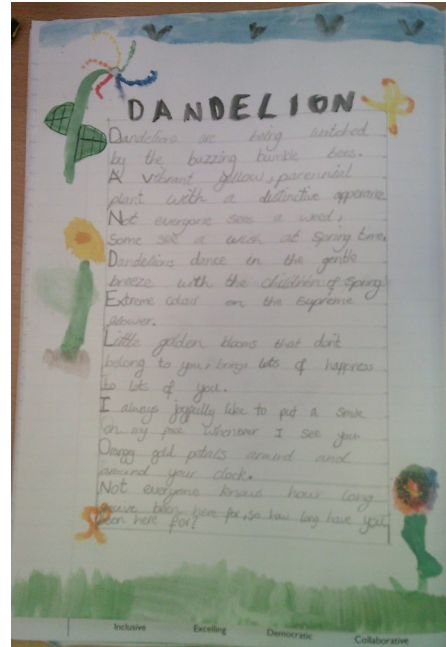 DANDELION
Dandelions are being watched
by the buzzing bumble bees.
A vibrant yellow, parennial
plant with a distinctive apperance.
Not everyone sees a weed,
some see a wish at spring time.
Dandelions dance in the gentle
breeze with the children of spring
Extreme colour on the supreme
flower.
Little golden blooms that don't
belong to you, brings lots of happness
to lots of you.
I always joyfully like to put a smile
on my face whenever I see you
gold petals around and
around your clock.
Not everyone knows how long
you've been here for, so how long have you
been here for?
Inclusive Excelling Democratic Collaborative